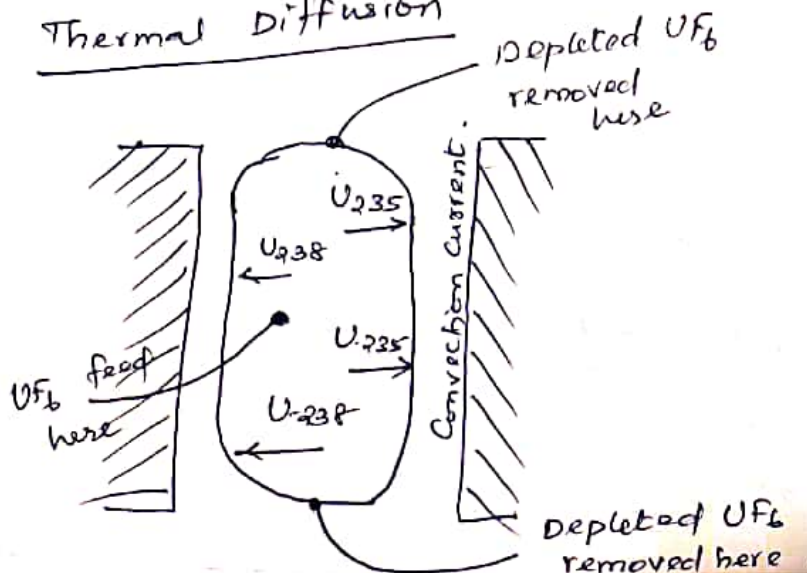 Thermal Diffusion
Depleted UF6
removed
here
U235
U238
Convection Current.
U-235
UF6 feed
here
U-238
Depleted UF6
removed here